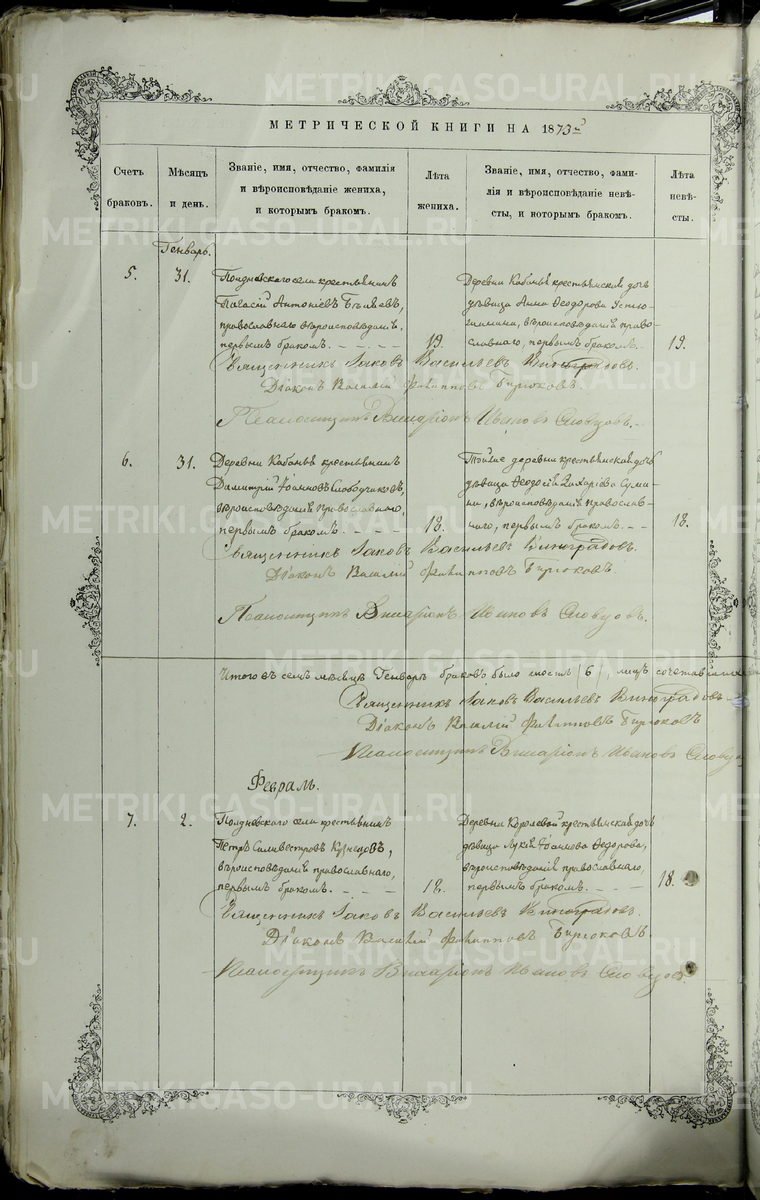 МЕТРИЧЕСКОЙ КНИГИ НА 1873й
Счетъ браковъ.
Мѣсяцъ и день.
Званіе, имя, отчество, фамилія
и вѣроисповѣданіе жениха,
и которымъ бракомъ.
Лѣта жениха.
Званіе, имя, отчество, фами-
лія и вѣроисповѣданіе невѣ-
сты, и которымъ бракомъ.
Лѣта невѣ-
сты.
Генварь.
5. 31.
Полдневскаго села крестьянинъ
Антоніевъ Бѣляевъ,
православнаго вѣроисповѣданія,
первымъ бракомъ. - - - - 19.
Деревни Кабаньи крестьянская дочь
дѣвица Анна Ѳеодорова
вѣроисповѣданія право-
славнаго, первымъ бракомъ. 19.
Священникъ Іаковъ Васильевъ Виноградовъ.
Діаконъ Василій Филипповъ Бирюковъ.
Псаломщикъ Виссаріонъ Ивановъ Словцовъ.
6. 31.
Деревни Кабаньи крестьянинъ
Димитрій Іоанновъ Слободчиковъ,
вѣроисповѣданія православнаго,
первымъ бракомъ. - - - - 18.
Тойже деревни крестьянская дочь
дѣвица Ѳеодосія Захаріева
вѣроисповѣданія православ-
наго, первымъ бракомъ. - - 18.
Священникъ Іаковъ Васильевъ Виноградовъ.
Діаконъ Василій Филипповъ Бирюковъ.
Псаломщикъ Виссаріонъ Ивановъ Словцовъ.
Итого въ семъ мѣсяцѣ Генварѣ браковъ было шесть (6), лицъ
Священникъ Іаковъ Васильевъ Виноградовъ
Діаконъ Василій Филипповъ Бирюковъ
Псаломщикъ Виссаріонъ Ивановъ
Февраль.
7. 2.
Полдневскаго села крестьянинъ
Петръ Силивестровъ Кузнецовъ,
вѣроисповѣданія православнаго,
первымъ бракомъ. - - - - 18.
Деревни Королевой крестьянская дочь
дѣвица Іоаннова Ѳедорова,
вѣроисповѣданія православнаго,
первымъ бракомъ. - - - 18.
Священникъ Іаковъ Васильевъ Виноградовъ.
Діаконъ Василій Филипповъ Бирюковъ
Псаломщикъ Виссаріонъ Ивановъ Словцовъ.
METRIKI.GASO-URAL.RU